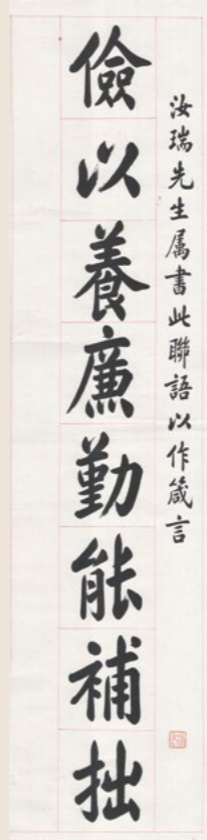 汝瑞先生属書此聯語以作箴言
儉以養廉勤能補拙